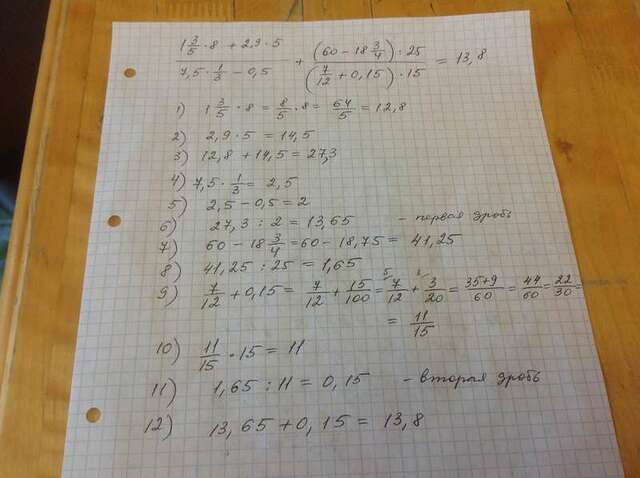 (1 3/5 · 8 + 2,9 · 5)/(7,5 · 1/3 − 0,5) + ((60 − 18 3/4) : 25)/((7/12 + 0,15) · 15) = 13,8
1) 1 3/5 · 8 = 8/5 · 8 = 64/5 = 12,8
2) 2,9 · 5 = 14,5
3) 12,8 + 14,5 = 27,3
4) 7,5 · 1/3 = 2,5
5) 2,5 − 0,5 = 2
6) 27,3 : 2 = 13,65 - первая дробь
7) 60 − 18 3/4 = 60 − 18,75 = 41,25
8) 41,25 : 25 = 1,65
9) 7/12 + 0,15 = 7/12 + 15/100 = 7/12 + 3/20 = (35+9)/60 = 44/60 = 22/30 =
= 11/15
10) 11/15 · 15 = 11
11) 1,65 : 11 = 0,15 - вторая дробь
12) 13,65 + 0,15 = 13,8